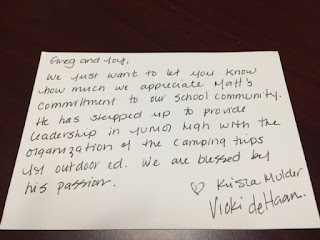 Greg and Joy,
We just want to let you know
how much we appreciate Matt's
commitment to our school community.
He has stepped up to provide
leadership in junior high with the
organization of the camping trips
4 outdoor ed. We are blessed by
his passion.
♡ Krista Mulder
Vicki deHaan.